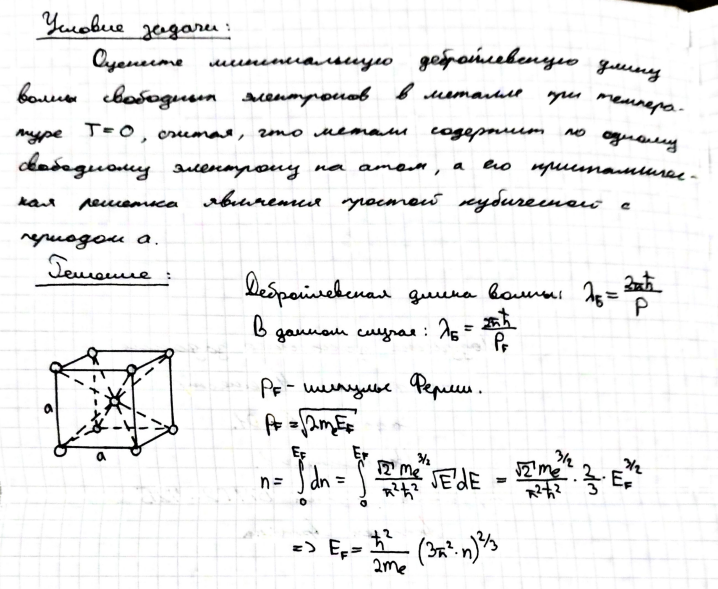 Условие задачи:
Оцените минимальную дебройлевскую длину
волны свободных электронов в металле при темпера-
туре T=0, считая, что металл содержит по одному
свободному электрону на атом, а его кристалличес-
кая решетка является простой кубической с
периодом a.
Решение:
Дебройлевская длина волны: λ_Б = 2πħ/P
В данном случае: λ_Б = 2πħ/P_F
P_F - импульс Ферми.
P_F = √(2m_eE_F)
a
a
n = ∫₀^{E_F} dn = ∫₀^{E_F} (√2 m_e^{3/2})/(π²ħ²) √E dE = (√2 m_e^{3/2})/(π²ħ²) · 2/3 · E_F^{3/2}
=> E_F = ħ²/(2m_e) (3π²·n)^{2/3}